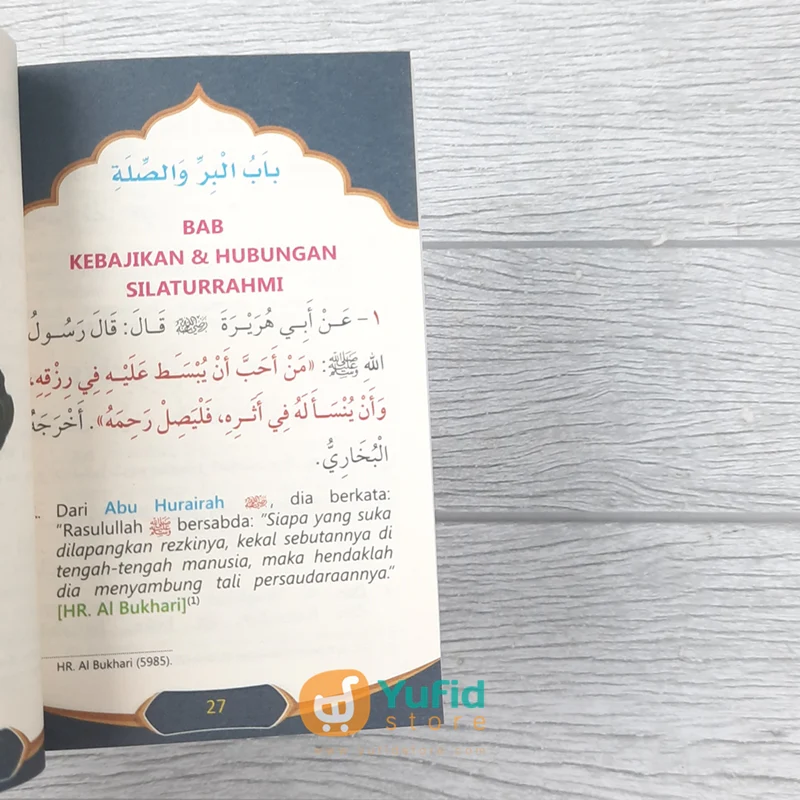 بَابُ الْبِرِّ وَالصِّلَةِ
BAB
KEBAJIKAN & HUBUNGAN
SILATURRAHMI
١- عَنْ أَبِي هُرَيْرَةَ ﵁ قَالَ: قَالَ رَسُولُ
اللهِ ﷺ: «مَنْ أَحَبَّ أَنْ يُبْسَطَ عَلَيْهِ فِي رِزْقِهِ،
وَأَنْ يُنْسَأَ لَهُ فِي أَثَرِهِ، فَلْيَصِلْ رَحِمَهُ». أَخْرَجَهُ
الْبُخَارِيُّ.
Dari Abu Hurairah ﵁, dia berkata:
"Rasulullah ﷺ bersabda: "Siapa yang suka
dilapangkan rezkinya, kekal sebutannya di
tengah-tengah manusia, maka hendaklah
dia menyambung tali persaudaraannya."
[HR. Al Bukhari](1)
HR. Al Bukhari (5985).
27
Yufid
store